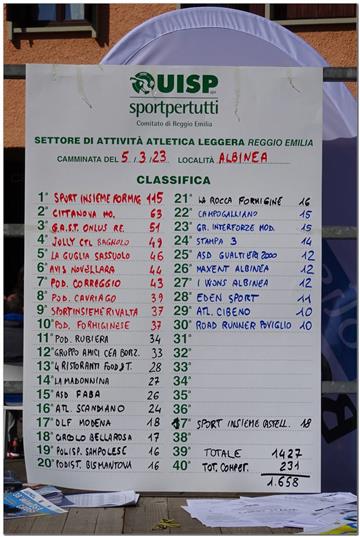 UISP
sportpertutti
Comitato di Reggio Emilia
SETTORE DI ATTIVITÀ ATLETICA LEGGERA REGGIO EMILIA
CAMMINATA DEL 5/3/23 LOCALITÀ ALBINEA
CLASSIFICA
1° SPORT INSIEME FORMIG 115
2° CITTANOVA MO. 63
3° G.A.S.T. ONLUS RE. 51
4° JOLLY CTL BAGNOLO 49
5° LA GUGLIA SASSUOLO 46
6° AVIS NOVELLARA 44
7° POD. CORREGGIO 43
8° POD. CAVRIAGO 39
9° SPORTINSIEME RIVALTA 37
10° POD. FORMIGINESE 37
11° POD. RUBIERA 34
12° GRUPPO AMICI CEA BORZ. 33
13° 4 RISTORANTI FOOD&T. 28
14° LA MADONNINA 27
15° ASD FABA 26
16° ATL. SCANDIANO 24
17° OLF MODENA 18
18° CROLO BELLAROSA 17
19° POLISP. SAMPOLESE 16
20° PODIST. BISMANTOVA 16
21° LA ROCCA FORMIGINE 16
22° CAMPOGALLIANO 15
23° GR. INTERFORZE MOD. 15
24° STAMPA 3 14
25° ASD GUALTIERI 2000 12
26° MAXENT ALBINEA 12
27° I WONS ALBINEA 12
28° EDEN SPORT 11
29° ATL. CIBENO 10
30° ROAD RUNNER POVIGLIO 10
31°
32°
33°
34°
35°
36°
17° SPORT INSIEME CASTELL. 18
38°
39° TOTALE 1427
40° TOT. COMPET. 231
1.658